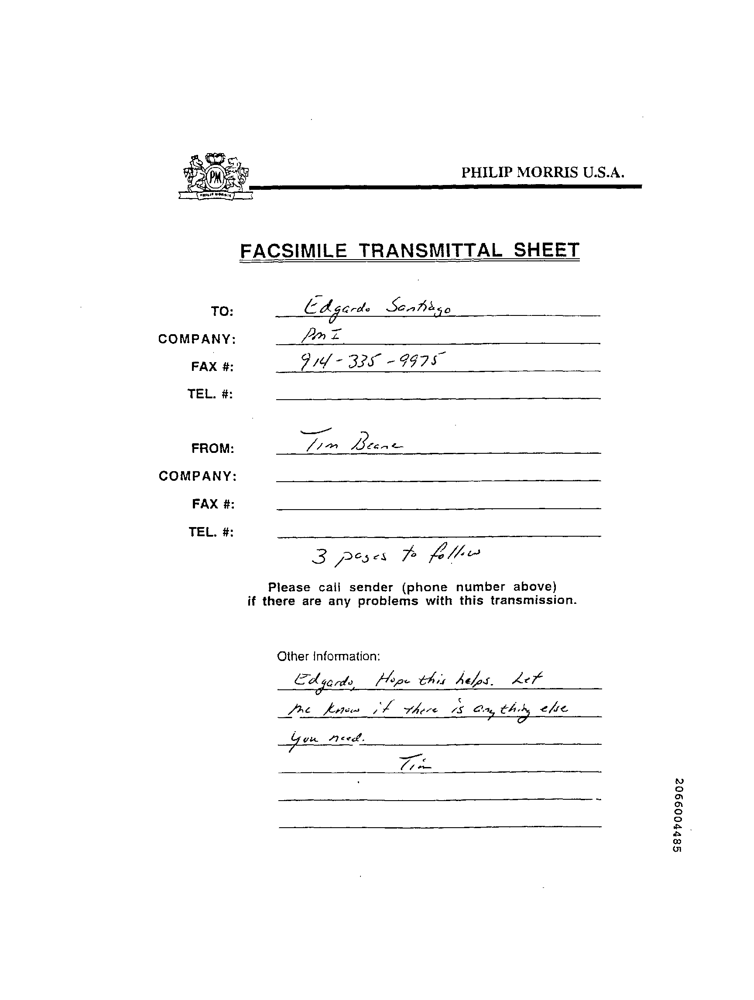 PM
PHILIP MORRIS
PHILIP MORRIS U.S.A.
FACSIMILE TRANSMITTAL SHEET
TO: Edgardo Santiago
COMPANY: PM I
FAX #: 914-335-9975
TEL. #:
FROM: Tim Beane
COMPANY:
FAX #:
TEL. #:
3 pages to follow
Please call sender (phone number above)
if there are any problems with this transmission.
Other Information:
Edgardo, Hope this helps. Let
me know if there is anything else
you need.
Tim
2066004485